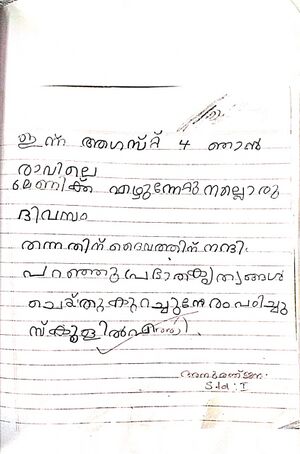 ഇന്ന് ആഗസ്റ്റ് 4 ഞാൻ
രാവിലെ
6മണിക്ക് എഴുന്നേറ്റു നല്ലൊരു
ദിവസം
തന്നതിന് ദൈവത്തിന് നന്ദി
പറഞ്ഞു പ്രഭാതകൃത്യങ്ങൾ
ചെയ്തു കുറച്ചുനേരം പഠിച്ചു
സ്കൂളിൽ
Std: I